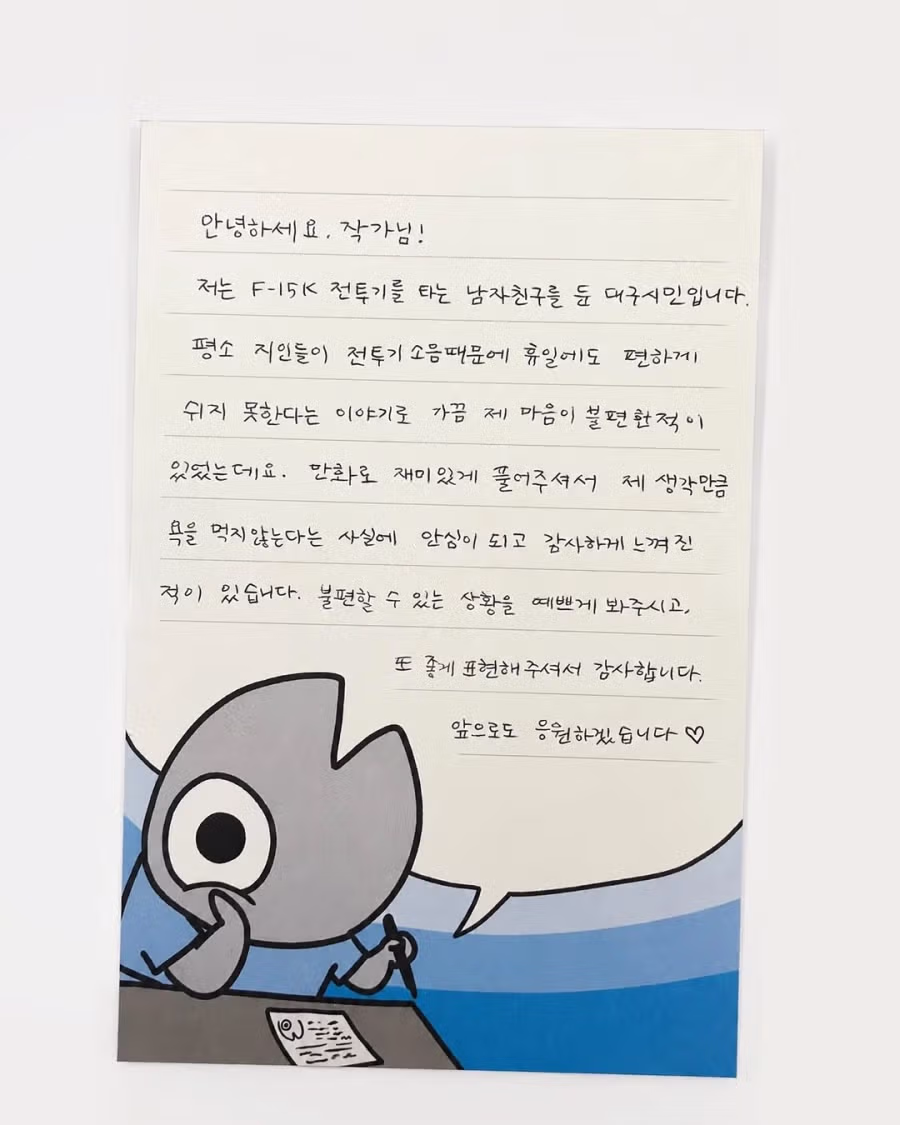 안녕하세요, 작가님!
저는 F-15K 전투기를 타는 남자친구를 둔 대구시민입니다.
평소 지인들이 전투기 소음때문에 휴일에도 편하게
쉬지 못한다는 이야기로 가끔 제 마음이 불편한적이
있었는데요. 만화로 재미있게 풀어주셔서 제 생각만큼
욕을 먹지않는다는 사실에 안심이 되고 감사하게 느껴진
적이 있습니다. 불편할 수 있는 상황을 예쁘게 봐주시고,
또 좋게 표현해주셔서 감사합니다.
앞으로도 응원하겠습니다♡